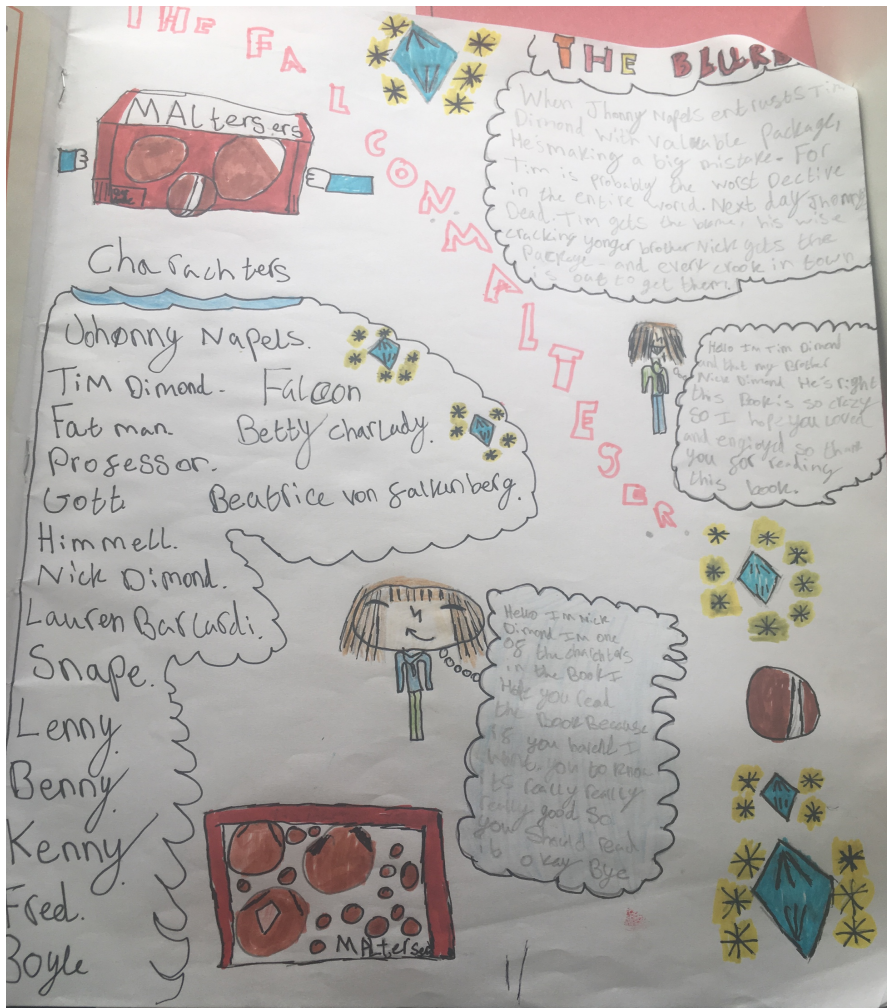 THE FALCON MALTESER
MALtersers
THE BLURB
When Jhonny Napels entrusts Tim
Dimond with Valuable Package,
He's making a big mistake. For
Tim is probably the worst Dective
in the entire world. Next day Jhonny
Dead. Tim gets the blame, his wise
cracking yonger brother Nick gets the
Package - and every crook in town
is out to get them.
Charachters
Johonny Napels.
Tim Dimond. Falcon
Fat man. Betty charlady.
Professor.
Gott Beatrice von falkenberg.
Himmell.
Nick Dimond.
Lauren Barcardi.
Snape.
Lenny
Benny
Kenny
Fred.
Boyle
Hello Im Tim Dimond
and that my Brother
Nick Dimond He's right
this Book is so crazy
So I hope you Loved
and engioyed so thank
you for reading
this book.
Hello Im nick
Dimond Im one
of the charichters
in the Book I
Hope you read
the Book Because
if you havent I
want you to know
its really really
really good so
you should read
it okay Bye
MALterser